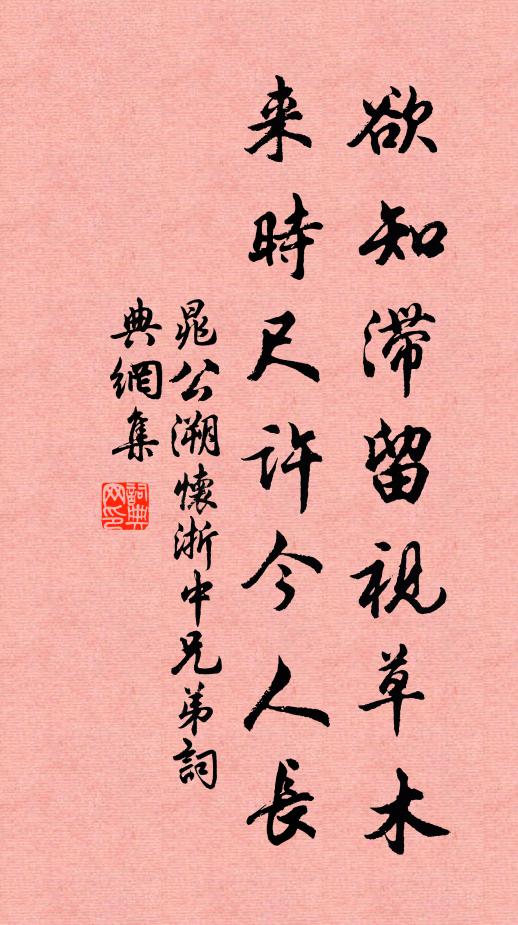 欲知滞留視草木
来時尺許今人長
晁公溯懷浙中兄弟詞
典網集
詞典网印